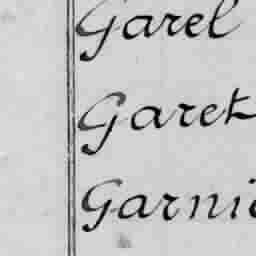 Garel
Garet
Garni